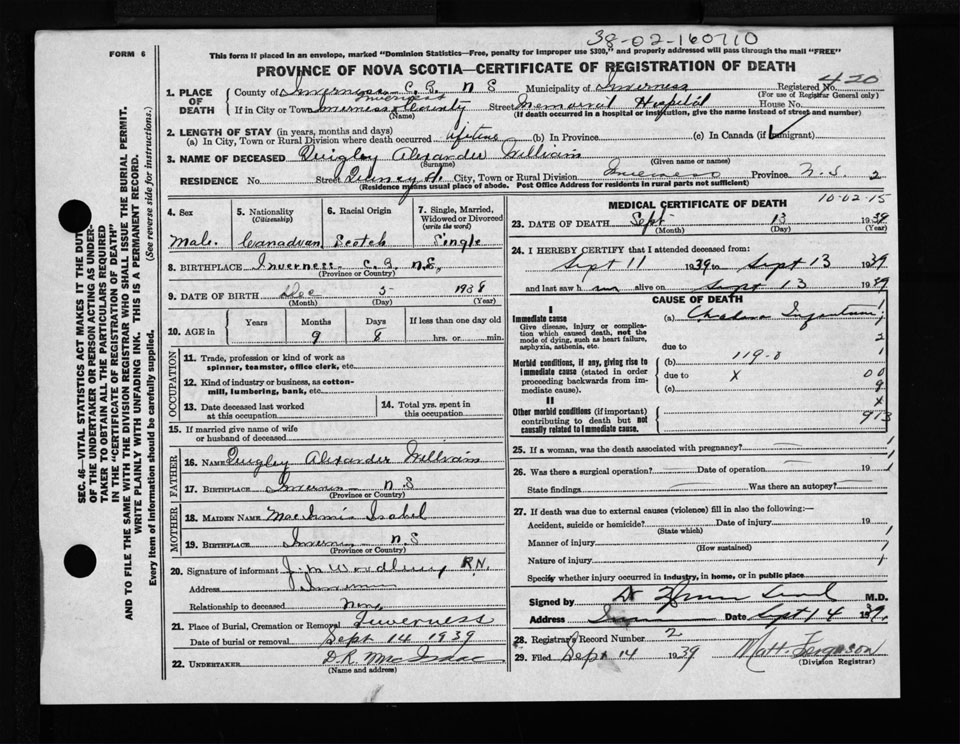 38-02-160710
FORM 6
This form if placed in an envelope, marked "Dominion Statistics—Free, penalty for improper use $300," and properly addressed will pass through the mail "FREE"
PROVINCE OF NOVA SCOTIA—CERTIFICATE OF REGISTRATION OF DEATH
SEC. 46—VITAL STATISTICS ACT MAKES IT THE DUTY
OF THE UNDERTAKER OR PERSON ACTING AS UNDER-
TAKER TO OBTAIN ALL THE PARTICULARS REQUIRED
IN THE "CERTIFICATE OF REGISTRATION OF DEATH"
AND TO FILE THE SAME WITH THE DIVISION REGISTRAR WHO SHALL ISSUE THE BURIAL PERMIT.
WRITE PLAINLY WITH UNFADING INK. THIS IS A PERMANENT RECORD.
(See reverse side for instructions.)
Every item of information should be carefully supplied.
1. PLACE OF DEATH
County of Inverness - C.B. N S Municipality of Inverness Registered No. 420
(For use of Registrar General only)
If in City or Town Inverness Inverness County Street Memorial Hospital House No.
(Name) (If death occurred in a hospital or institution, give the name instead of street and number)
2. LENGTH OF STAY (in years, months and days)
(a) In City, Town or Rural Division where death occurred lifetime (b) In Province (c) In Canada (if immigrant) ✓
3. NAME OF DECEASED Quigley Alexander William
(Surname) (Given name or names)
RESIDENCE No. Street City, Town or Rural Division Inverness Province N.S. 2
(Residence means usual place of abode. Post Office Address for residents in rural parts not sufficient)
4. Sex
Male
5. Nationality
(Citizenship)
Canadian
6. Racial Origin
Scotch
7. Single, Married, Widowed or Divorced
(write the word)
Single
8. BIRTHPLACE Inverness - C.B. N.S.
(Province or Country)
9. DATE OF BIRTH Dec 5 1938
(Month) (Day) (Year)
10. AGE in
Years Months Days If less than one day old
9 8 hrs. or min.
OCCUPATION
11. Trade, profession or kind of work as
spinner, teamster, office clerk, etc.
12. Kind of industry or business, as cotton-
mill, lumbering, bank, etc.
13. Date deceased last worked
at this occupation
14. Total yrs. spent in
this occupation
15. If married give name of wife
or husband of deceased
FATHER
16. NAME Quigley Alexander William
17. BIRTHPLACE Inverness - N S
(Province or Country)
MOTHER
18. MAIDEN NAME MacInnis Isabel
19. BIRTHPLACE Inverness - N.S
(Province or Country)
20. Signature of informant R.N.
Address Inverness
Relationship to deceased None
21. Place of Burial, Cremation or Removal Inverness
Date of burial or removal Sept 14 1939
22. UNDERTAKER D.R. MacIsaac
(Name and address)
10-02-15
MEDICAL CERTIFICATE OF DEATH
23. DATE OF DEATH Sept 13 1939
(Month) (Day) (Year)
24. I HEREBY CERTIFY that I attended deceased from:
Sept 11 1939 to Sept 13 1939
and last saw him alive on Sept 13 1939
CAUSE OF DEATH
I
Immediate cause
Give disease, injury or complica-
tion which caused death, not the
mode of dying, such as heart failure,
asphyxia, asthenia, etc.
(a) Cholera Infantum
due to
Morbid conditions, if any, giving rise to
immediate cause (stated in order
proceeding backwards from im-
mediate cause).
(b) 119-0
due to X
(c)
II
Other morbid conditions (if important)
contributing to death but not
causally related to immediate cause.
1
2
1
00
9
X
913
25. If a woman, was the death associated with pregnancy?
26. Was there a surgical operation? Date of operation 19
State findings Was there an autopsy?
27. If death was due to external causes (violence) fill in also the following:—
Accident, suicide or homicide? Date of injury 19
(State which)
Manner of injury
(How sustained)
Nature of injury
Specify whether injury occurred in industry, in home, or in public place
Signed by Dr M.D.
Address Date Sept 14 1939.
28. Registrar's Record Number 2
29. Filed Sept 14 1939 Matt. Ferguson
(Division Registrar)